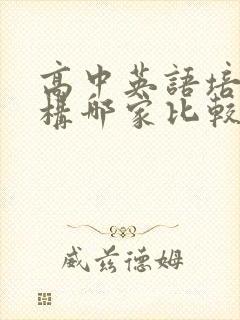 高中英語培
構哪家比較
威茲德姆